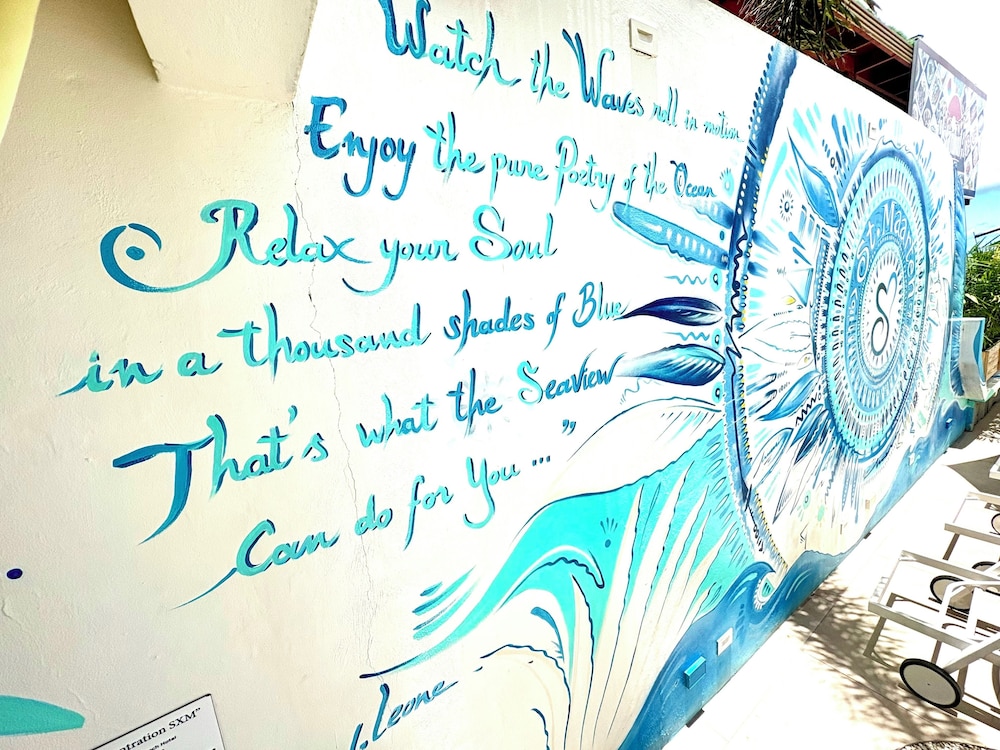 Watch the Waves roll in motion
Enjoy the pure Poetry of the Ocean
Relax your Soul
in a thousand shades of Blue
That's what the Seaview
Can do for You ... "
Leone
St. Maarten
ntration SXM"
ch Hotel